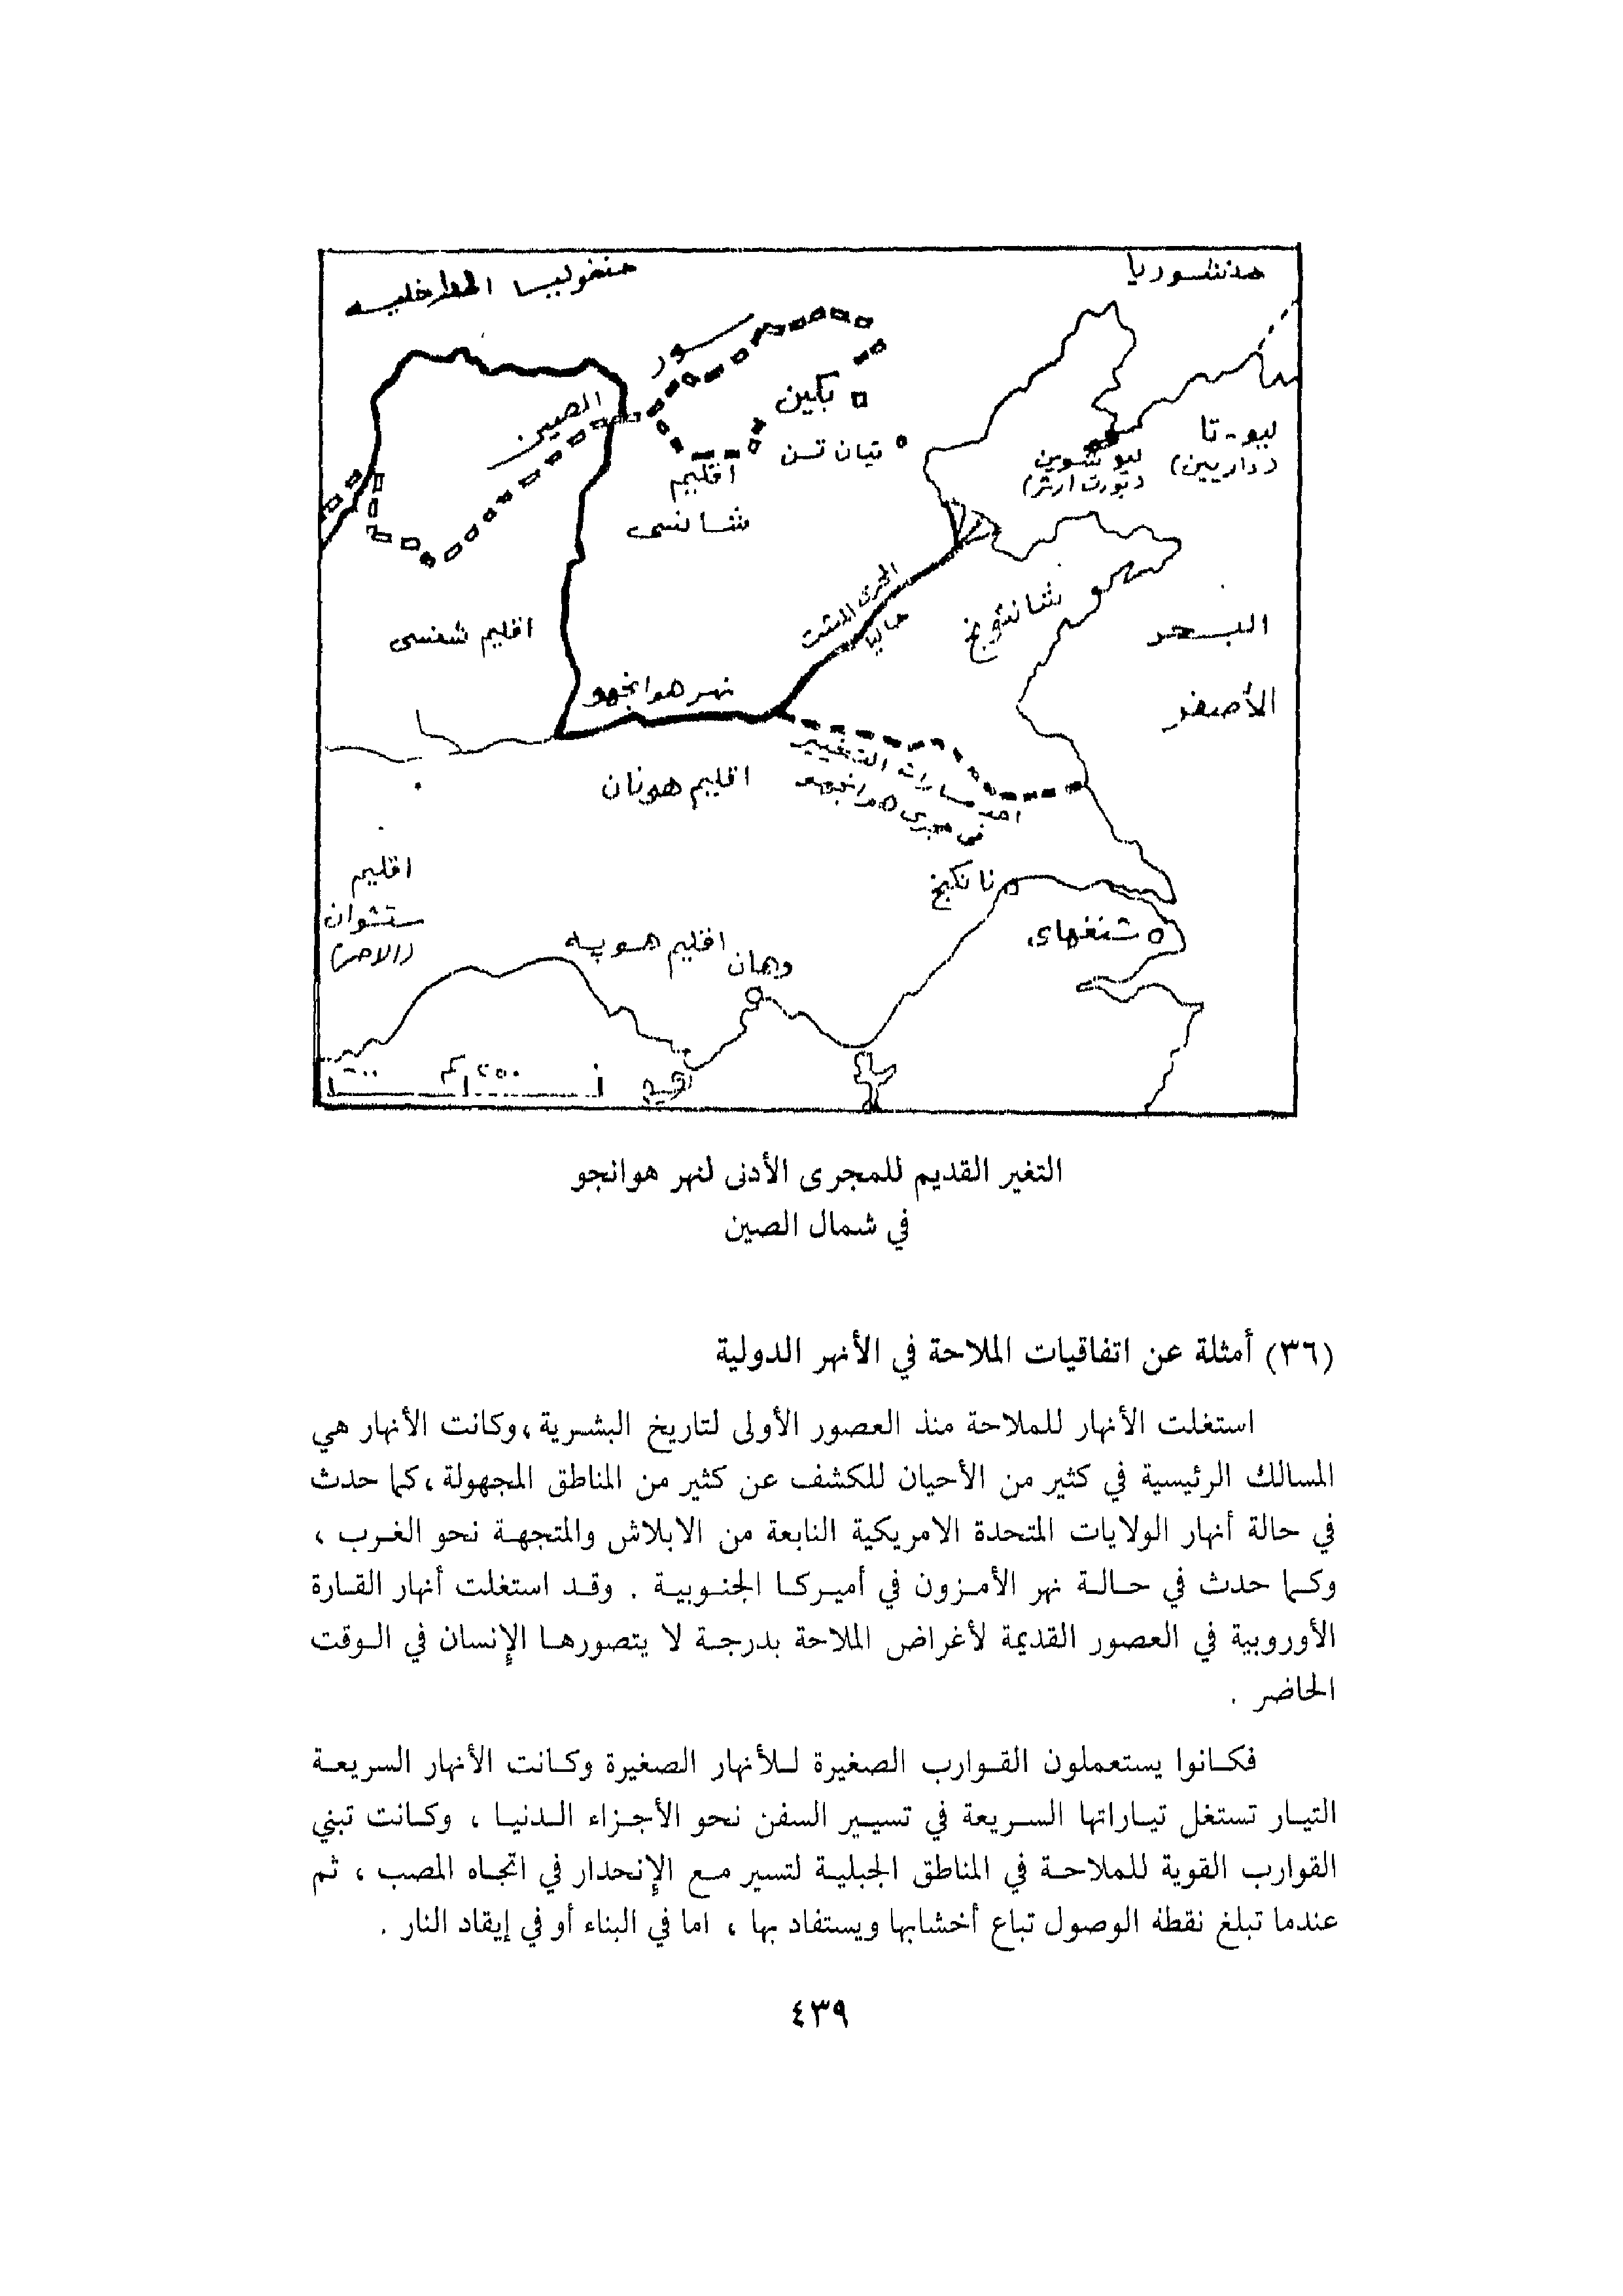 منشوريا
منغوليا الداخلية
سور
الصين
بكين
تيان تسن
اقليم
شانسى
ليو-تا
(داريين)
ليو شوين
(بورت ارثر)
اقليم شنسى
المجرى المثبت
حاليا
شانتونج
البحر
الأصفر
نهر هوانجهو
اقليم هونان
احد مسارات التغيير
فى مجرى هوانجهو
اقليم
ستشوان
(الاحمر)
نانكينج
شنغهاى
اقليم هوبيه
وهان
٢٥٠ كم
التغير القديم للمجرى الأدنى لنهر هوانجو
في شمال الصين
(٣٦) أمثلة عن اتفاقيات الملاحة في الأنهر الدولية
استغلت الأنهار للملاحة منذ العصور الأولى لتاريخ البشرية ، وكانت الأنهار هي
المسالك الرئيسية في كثير من الأحيان للكشف عن كثير من المناطق المجهولة ، كما حدث
في حالة أنهار الولايات المتحدة الامريكية النابعة من الابلاش والمتجهة نحو الغرب ،
وكما حدث في حالة نهر الأمزون في أميركا الجنوبية . وقد استغلت أنهار القارة
الأوروبية في العصور القديمة لأغراض الملاحة بدرجة لا يتصورها الإنسان في الوقت
الحاضر .
فكانوا يستعملون القوارب الصغيرة للأنهار الصغيرة وكانت الأنهار السريعة
التيار تستغل تياراتها السريعة في تسيير السفن نحو الأجزاء الدنيا ، وكانت تبني
القوارب القوية للملاحة في المناطق الجبلية لتسير مع الإنحدار في اتجاه المصب ، ثم
عندما تبلغ نقطة الوصول تباع أخشابها ويستفاد بها ، اما في البناء أو في إيقاد النار .
٤٣٩